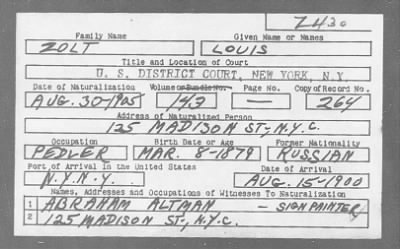 Z430
Family Name Given Name or Names
ZOLT LOUIS
Title and Location of Court
U. S. DISTRICT COURT, NEW YORK, N.Y.
Date of Naturalization Volume or Bundle No. Page No. Copy of Record No.
AUG. 30-1905 143 — 264
Address of Naturalized Person
125 MADISON ST., N.Y.C.
Occupation Birth Date or Age Former Nationality
PEDLER MAR. 8-1879 RUSSIAN
Port of Arrival in the United States Date of Arrival
N.Y.N.Y. AUG. 15-1900
Names, Addresses and Occupations of Witnesses To Naturalization
1 ABRAHAM ALTMAN — SIGN PAINTER
2 125 MADISON ST., N.Y.C.